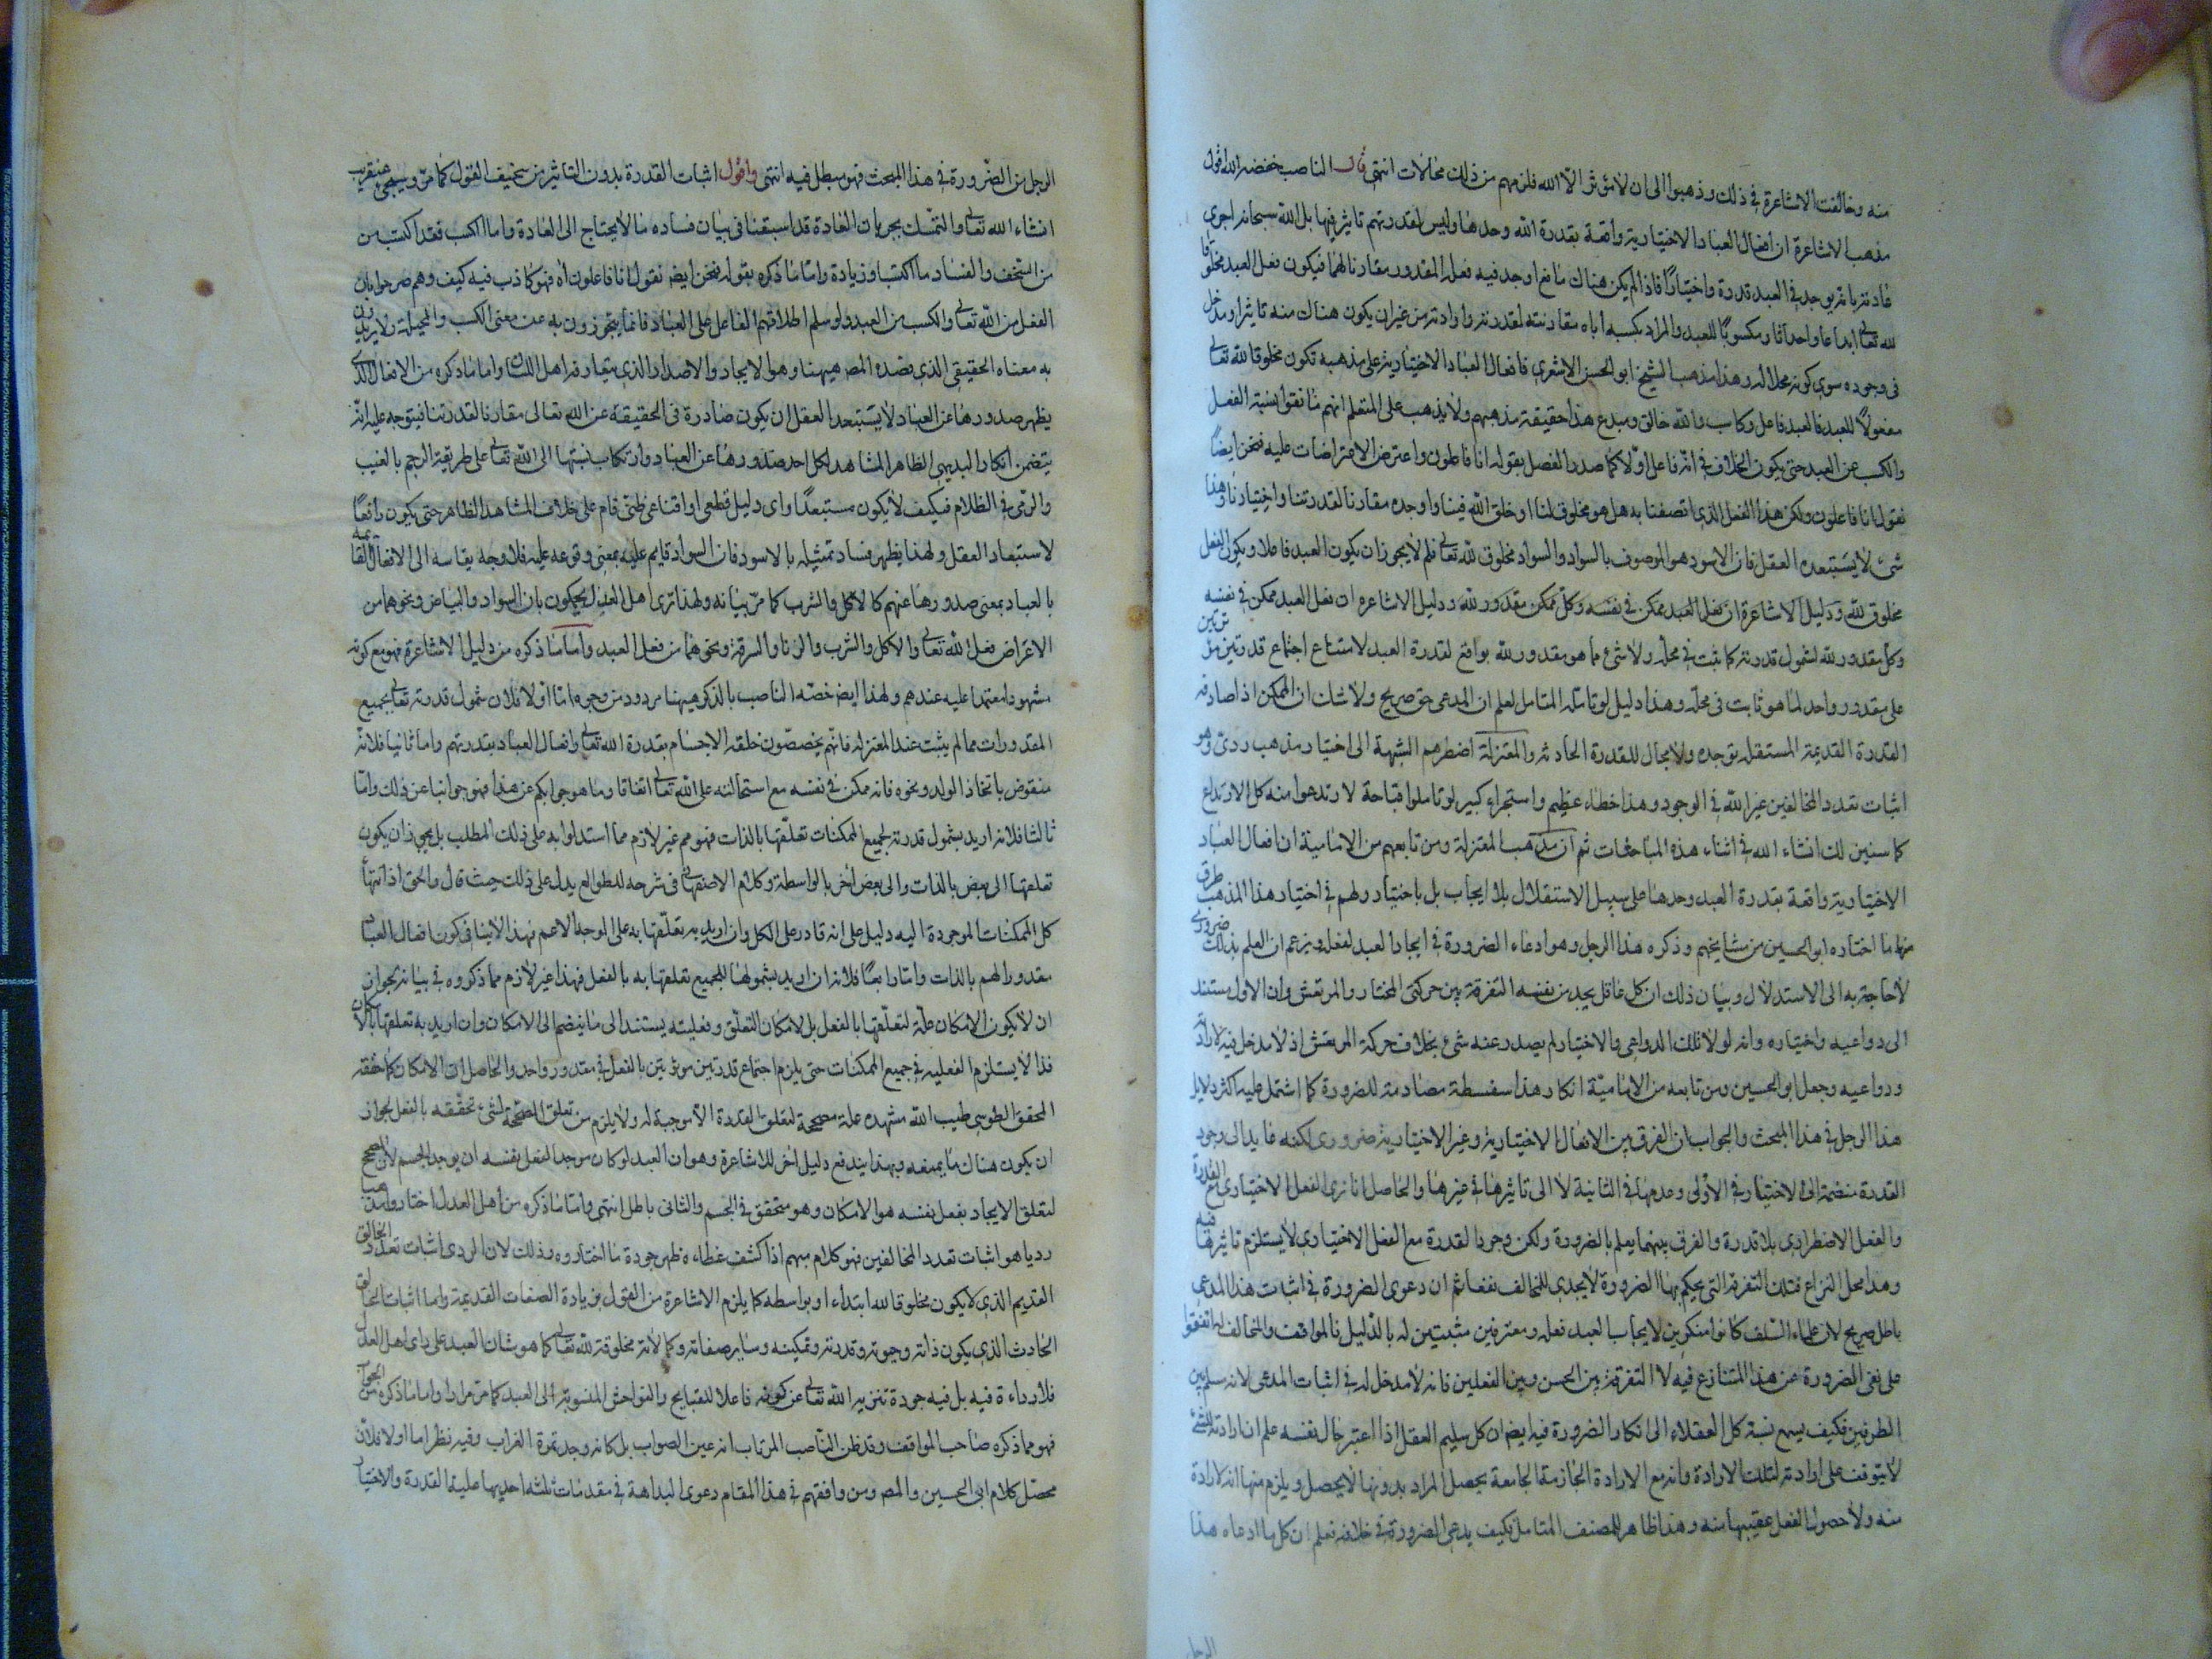 منه وخالفت الاشاعرة في ذلك وذهبوا الى ان لا مؤثر الا الله فلزمهم من ذلك محالات انتهى قال الناصب خفضه الله اقول
مذهب الاشاعرة ان افعال العباد الاختيارية واقعة بقدرة الله وحدها وليس لقدرتهم تاثير فيها بل الله سبحانه اجرى
عادته بانه يوجد في العبد قدرة واختيارا فاذا لم يكن هناك مانع اوجد فيه فعله المقدور مقارنا لهما فيكون فعل العبد مخلوقا
لله تعالى ابداعا واحداثا ومكسوبا للعبد والمراد بكسبه اياه مقارنته لقدرته وارادته من غير ان يكون هناك منه تاثير او مدخل
في وجوده سوى كونه محلا له وهذا مذهب الشيخ ابو الحسن الاشعري فافعال العباد الاختيارية على مذهبه تكون مخلوقا لله تعالى
مفعولا للعبد فالعبد فاعل وكاسب والله خالق ومبدع هذا حقيقة مذهبهم ولا يذهب على المتعلم انهم ما نفوا نسبة الفعل
والكسب عن العبد حتى يكون الخلاف في انه فاعل اولا كما صدر الفصل بقوله انا فاعلون واعترض الاعتراضات عليه فنحن ايضا
نقول انا فاعلون ولكن هذا الفعل الذي اتصفنا به هل هو مخلوق لنا او خلق الله فينا واوجده مقارنا لقدرتنا واختيارنا وهذا
شئ لا يستبعده العقل فان الاسود هو الموصوف بالسواد والسواد مخلوق لله تعالى فلم لا يجوز ان يكون العبد فاعلا ويكون الفعل
مخلوق لله ودليل الاشاعرة ان فعل العبد ممكن في نفسه وكل ممكن مقدور لله ودليل الاشاعره ان فعل العبد ممكن في نفسه
وكل مقدور لله لشمول قدرته كما ثبت في محله ولا شئ مما هو مقدور لله بواقع لقدرة العبد لامتناع اجتماع قدرتين مؤثرتين
على مقدور واحد لما هو ثابت في محله وهذا دليل لو تامله المتامل لعلم ان المدعى حق صريح ولا شك ان الممكن اذا صادفه
القدرة القديمة المستقلة توجده ولا مجال للقدرة الحادثه والمعتزلة اضطرهم الشبهة الى اختيار مذهب ردئ وهو
اثبات تعدد الخالقين غير الله في الوجود وهذا خطاء عظيم واستجراء كبير لو تاملوا قباحة لارتدعوا منه كل الارتداع
كما سنبين لك انشاء الله في اثناء هذه المباحثات ثم ان مذهب المعتزلة ومن تابعهم من الامامية ان افعال العباد
الاختيارية واقعة بقدرة العبد وحدها على سبيل الاستقلال بلا ايجاب بل باختيار ولهم في اختيار هذا المذهب طرق
منها ما اختاره ابو الحسين من مشايخهم وذكره هذا الرجل وهو ادعاء الضرورة في ايجاد العبد لفعله ويزعم ان العلم بذلك ضروري
لا حاجة به الى الاستدلال وبيان ذلك ان كل عاقل يجد من نفسه التفرقة بين حركتي المختار والمرتعش وان الاول مستند
الى دواعيه واختياره وانه لولا تلك الدواعي والاختيار لم يصدر عنه شئ بخلاف حركة المرتعش اذ لا مدخل فيه لارادته
ودواعيه وجعل ابو الحسين ومن تابعه من الامامية انكار هذا سفسطة مصادمة للضرورة كما اشتمل عليه اكثر دلايل
هذا الرجل في هذا المبحث والجواب ان الفرق بين الافعال الاختيارية وغير الاختيارية ضروري لكنه عايد الى وجود
القدرة منضمة الى الاختيار في الاولى وعدمها في الثانية لا الى تاثيرها في غيرها والحاصل انا نرى الفعل الاختياري مع القدرة
والفعل الاضطراري بلا قدرة والفرق بينهما يعلم بالضرورة ولكن وجود القدرة مع الفعل الاختياري لا يستلزم تاثيرها فيه
وهذا محل النزاع فتلك التفرقة التي يحكم بها الضرورة لا يجدي للمخالف نفعا ثم ان دعوى الضرورة في اثبات هذا المدعى
باطل صريح لان علماء السلف كانوا منكرين لايجاب العبد فعله ومعترفين مثبتين له بالدليل فالموافق والمخالف له اتفقوا
على نفي الضرورة عن هذا المتنازع فيه لا التفرقة بين الحسن وبين الفعلين فانه لا مدخل له في اثبات المدعى لانه سلم بين
الطرفين فكيف يسمع نسبة كل العقلاء الى انكار الضرورة فيه ايضا ان كل سليم العقل اذا اعتبر حال نفسه علم ان ارادته للشئ
لا يتوقف على ارادته لتلك الارادة وانه مع الارادة الجازمة الجامعة يحصل المراد بدونها لا يحصل ويلزم منها انه لا ارادة
منه ولا حصول الفعل عقيبها منه وهذا ظاهر للمصنف المتامل فكيف يدعي الضرورة في خلافه فعلم ان كل ما ادعاه هذا
الرجل
الرجل من الضرورة في هذا المبحث فهو مبطل فيه انتهى واقول اثبات القدرة بدون التاثير من سخيف القول كما مر وسيجئ عنقريب
انشاء الله تعالى والتمسك بجريان العادة قد اسبقنا في بيان فساده ما لا يحتاج الى العادة واما الكسب فقد اكتسب من
من السخف والفساد ما اكتسب وزيادة واما ما ذكره بقوله فنحن ايضا نقول انا فاعلون اه فهو كاذب فيه كيف وهم صرحوا بان
الفعل من الله تعالى والكسب من العبد ولو سلم اطلاقهم الفاعل على العباد فانما يتجوزون به عن معنى الكسب والمحلية ولا يريدون
به معناه الحقيقي الذي قصده المصـ هيهنا وهو الايجاد والاصدار الذي يتعارفه اهل اللسان واما ما ذكره من الافعال الذي
يظهر صدورها عن العباد لا يستبعد العقل ان يكون صادرة في الحقيقة عن الله تعالى مقارنا لقدرتنا فيتوجه عليه انه
يتضمن انكار البديهي الظاهر المشاهد لكل احد صدورها عن العباد وارتكاب نسبتها الى الله تعالى على طريقة الرجم بالغيب
والرمي في الظلام فكيف لا يكون مستبعدا واي دليل قطعي او اقناعي ظني قام على خلاف المشاهد الظاهر حتى يكون رافعا
لاستبعاد العقل ولهذا يظهر فساد تمثيله بالاسود فان السواد قايم عليه بمعنى وقوعه عليه فلا وجه يقاسه الى الافعال القائمة
بالعباد بمعنى صدورها عنهم كالاكل والشرب كما مر بيانه ولهذا ترى اهل العدل يحكمون بان السواد والبياض ونحوهما من
الاعراض فعل الله تعالى والاكل والشرب والزنا والسرقة ونحوهما من فعل العبد واما ما ذكره من دليل الاشاعرة فهو مع كونه
مشهودا معتمدا عليه عندهم ولهذا ايضا خصه الناصب بالذكر هيهنا مردود من وجوه اما اولا فلان شمول قدرته تعالى بجميع
المقدورات مما لم يثبت عند المعتزلة فانهم يخصصون خلقه الاجسام بقدرة الله تعالى وافعال العباد بقدرتهم واما ثانيا فلانه
منقوض باتخاذ الولد ونحوه فانه ممكن في نفسه مع استحالته على الله تعالى اتفاقا وما هو جوابكم عن هذا فهو جوابنا عن ذلك واما
ثالثا فلانه اريد بشمول قدرته لجميع الممكنات تعلقها بالذات فهو مم غير لازم مما استدلوا به على ذلك المطلب بل يجوز ان يكون
تعلقها الى بعض بالذات والى بعض اخر بالواسطة وكلام الاصفهاني في شرحه للطوالع يدل على ذلك حيث قال والحق اذ انتهاء
كل الممكنات الموجودة اليه دليل على انه قادر على الكل وان اريد به تعلقها به على الوجه الاعم فهذا لا ينافي كون افعال العباد
مقدورا لهم بالذات واما رابعا فلانه ان اريد بشمولها للجميع تعلقها به بالفعل فهذا غير لازم مما ذكروه في بيانه لجواز
ان لا يكون الامكان علة لتعلقها بالفعل بل لامكان التعلق وفعليته يستند الى ما ينضم الى الامكان وان اريد به تعلقها بالامكان
فذا لا يستلزم الفعليه في جميع الممكنات حتى يلزم اجتماع قدرتين موثرتين بالفعل في مقدور واحد والحاصل ان الامكان كما حققه
المحقق الطوسي طيب الله مشهده علة مصححة لتعلق القدرة لا موجبة له ولا يلزم من تعلق الصحة لشئ تحققه بالفعل لجواز
ان يكون هناك ما يمنعه وبهذا يندفع دليل اخر للاشاعرة وهو ان العبد لو كان موجدا لفعل نفسه ان يوجد الجسم لان المصحح
لتعلق الايجاد بفعل نفسه هو الامكان وهو متحقق في الجسم والثاني باطل انتهى واما ما ذكره من اهل العدل اختاروا مذهبا
رديا هو اثبات تعدد الخالقين فهو كلام مبهم اذا كشف غطاءه ظهر جودة ما اختاروه وذلك لان الردى اثبات تعدد الخالق
القديم الذي لا يكون مخلوقا لله ابتداء او بواسطه كما يلزم الاشاعرة من القول بزيادة الصفات القديمة واما اثبات الخالق
الحادث الذي يكون ذاته وحيوته وقدرته وتمكينه وساير صفاته وكمالاته مخلوقة لله تعالى كما هو شان العبد على راى اهل العدل
فلا رداءة فيه بل فيه جودة تنزيه الله تعالى عن كونه فاعلا للقبايح والفواحش المنسوبة الى العبد كما مر مرارا واما ما ذكره من الجواب
فهو مما ذكره صاحب المواقف وقد ظن الناصب المرتاب انه عين الصواب بل كانه وجد تمرة الغراب وفيه نظر اما اولا فلان
محصل كلام ابي الحسين والمصـ ومن وافقهم في هذا المقام دعوى البداهة في مقدمات ثلثه احديها علية القدرة والاختيار